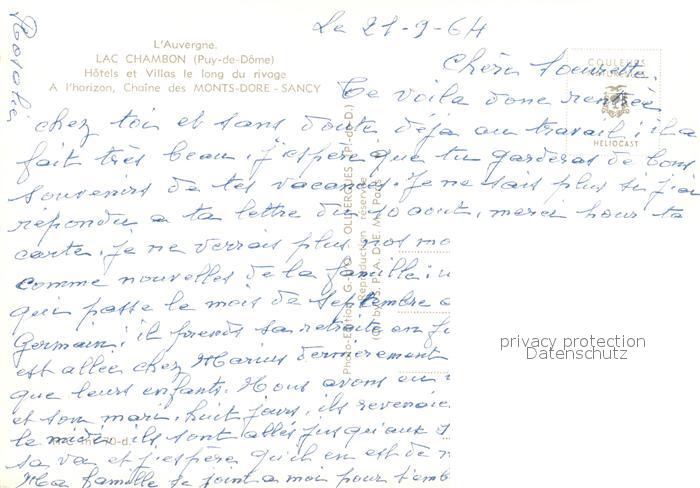 Le 21-9-64
L'Auvergne.
LAC CHAMBON (Puy-de-Dôme)
Hôtels et Villas le long du rivage
A l'horizon, Chaîne des MONTS-DORE - SANCY
COULEURS
HELIOCAST
Chère Soeurette.
Te voila donc rentrée
chez toi et sans doute déja au travail, il a
fait très beau, j'espère que tu garderas de bons
souvenirs de tes vacances. Je ne sais plus si j'ai
répondu a ta lettre du 10 aout, merci pour ta
carte. je ne verrais plus nos
comme nouvelles de la famille
qui passe le mois de Septembre
Germain, il prends sa retraite en
est allée chez Marius dernièrement
que leurs enfants. Nous avons eu
et son mari, huit jours, ils
le midi, ils sont allés jusqu'aux
sa va et j'espère qu'il en est de
Ma famille se joint a moi pour
Photo-Edition G. d'O. OLLIERGUES (P.-de-D.)
Reproduction réservée
privacy protection
Datenschutz